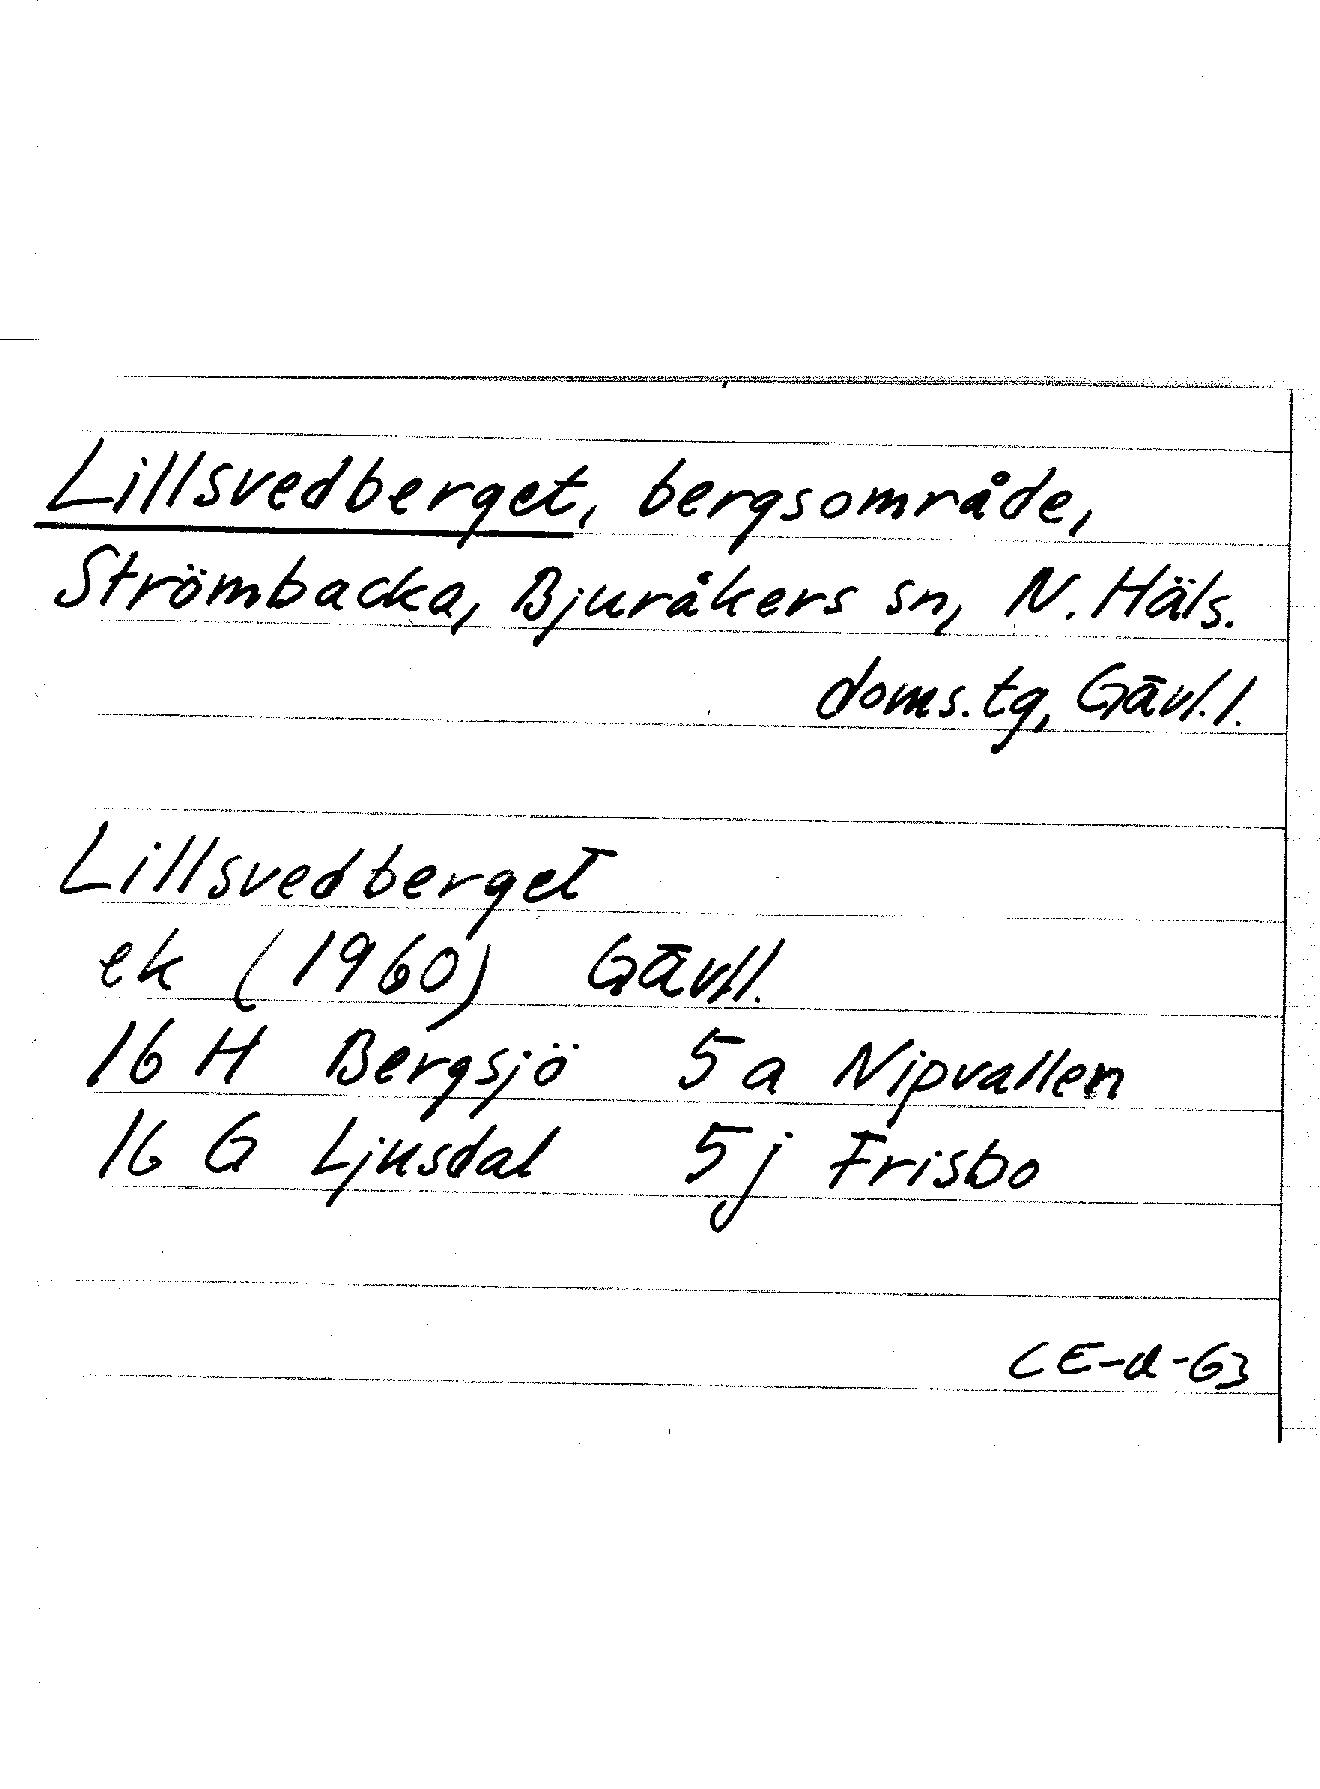 Lillsvedberget, bergsområde,
Strömbacka, Bjuråkers sn, N. Häls.
doms.tg, Gävl.l.
Lillsvedberget
ek (1960) Gävl.l.
16 H Bergsjö 5 a Nipvallen
16 G Ljusdal 5 j Frisbo
CE-d-63